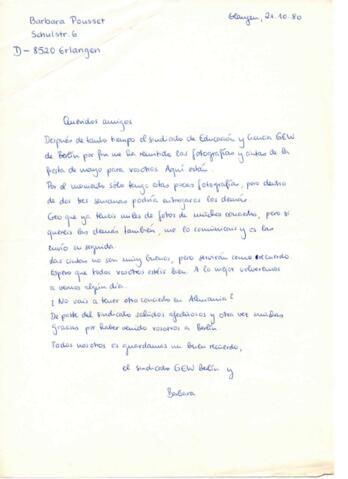 Barbara Pousset
Schulstr. 6
D-8520 Erlangen
Erlangen, 21.10.80
Queridos amigos
Después de tanto tiempo el sindicato de Educación y Ciencia GEW
de Berlín por fin me ha remitido las fotografías y cintas de la
fiesta de mayo para vosotros. Aquí están.
Por el momento sólo tengo estas pocas fotografías, pero dentro
de dos tres semanas podría entregaros las demás.
Creo que ya tenéis miles de fotos de muchos conciertos, pero si
queréis las demás también, me lo comunicáis y os las
envío en seguida.
Las cintas no son muy buenas, pero servirán como recuerdo.
Espero que todos vosotros estéis bien. A lo mejor volveremos
a vernos algún día.
¿No vais a tener otro concierto en Alemania?
De parte del sindicato saludos afectuosos y otra vez muchas
gracias por haber venido vosotros a Berlín.
Todos nosotros os guardamos un buen recuerdo,
el sindicato GEW Berlín y
Barbara